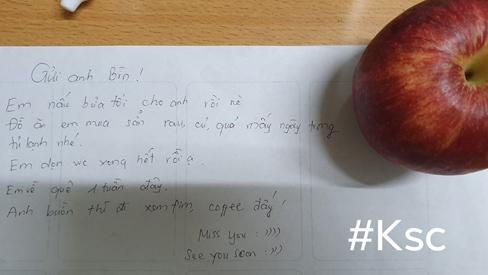 Gửi anh Bin!
Em nấu bữa tối cho anh rồi nè
Đồ ăn em mua sẵn rau, củ, quả mấy ngày trong
tủ lạnh nhé.
Em dọn wc xong hết rồi ạ.
Em về quê 1 tuần đây.
Anh buồn thì đi xem fim, coffee đấy!
Miss you :))))
See you soon :))
#Ksc